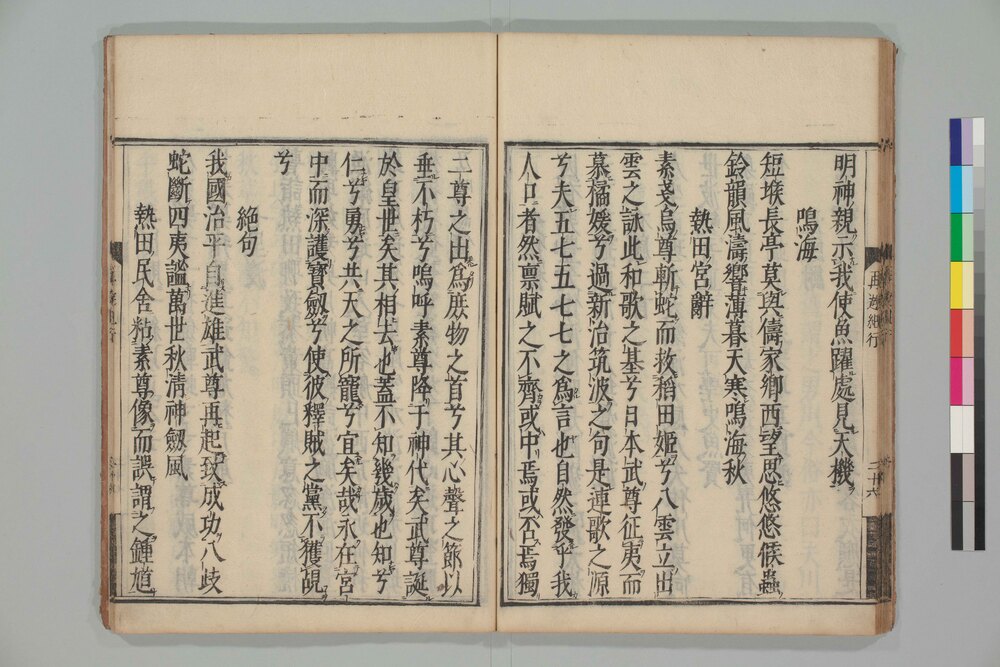 明神親示我使魚躍處見天機
鳴海
短堠長亭莫與儔家鄉西望思悠悠候蟲
鈴韻風濤響薄暮天寒鳴海秋
熱田宮辭
素戔烏尊斬蛇而救稻田姬兮八雲立出
雲之詠此和歌之基兮日本武尊征夷而
慕橘媛兮過新治筑波之句是連歌之源
兮夫五七五七七之爲言也自然發乎我
人口者然禀賦之不齊或中焉或否焉獨
再遊紀行
二十六
二尊之出爲庶物之首兮其心聲之節以
垂不朽兮嗚呼素尊降于神代矣武尊誕
於皇世矣其相去也蓋不知幾歲也知兮
仁兮勇兮共天之所寵兮宜矣哉永在宮
中而深護寶劔兮使彼釋賊之黨不獲覘
兮
絶句
我國治平自進雄武尊再起致成功八歧
蛇斷四夷謐萬世秋清神劔風
熱田民舍粘素尊像而誤謂之鍾馗